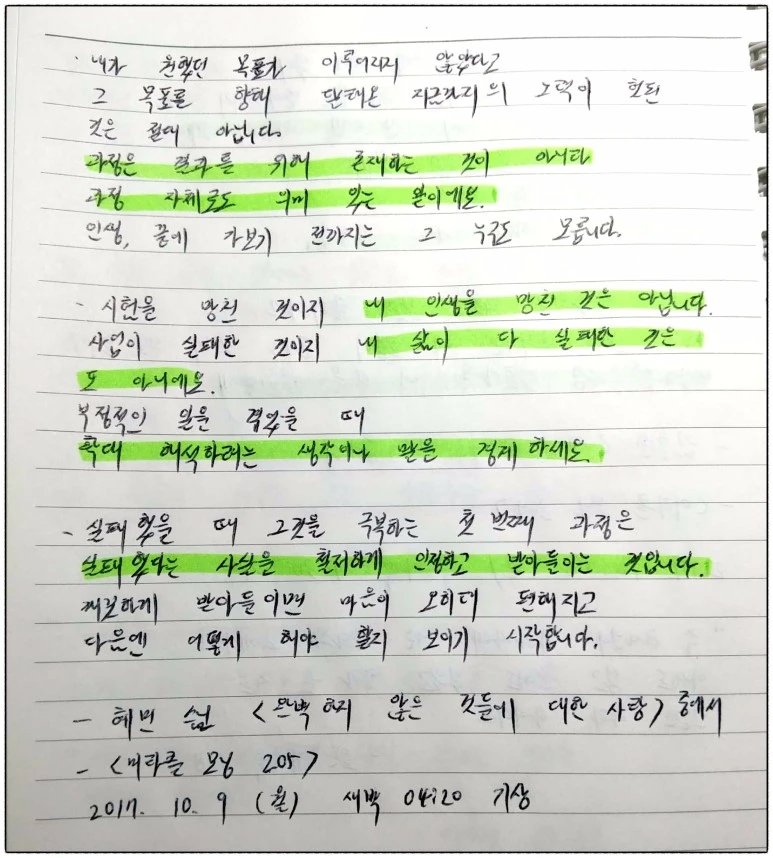 · 내가 원했던 목표가 이루어지지 않았다고
그 목표를 향해 달려온 지금까지의 노력이 헛된
것은 절대 아닙니다.
과정은 결과를 위해 존재하는 것이 아니다
과정 자체로도 의미 있는 삶이에요.
인생, 끝에 가보기 전까지는 그 누구도 모릅니다.
- 시험을 망친 것이지 내 인생을 망친 것은 아닙니다.
사업이 실패한 것이지 내 삶이 다 실패한 것은
또 아니에요.
부정적인 일을 겪었을 때
확대 해석하려는 생각이나 말을 경계 하세요.
- 실패 했을 때 그것을 극복하는 첫 번째 과정은
실패 했다는 사실을 철저하게 인정하고 받아들이는 것입니다.
겸허하게 받아들이면 마음이 오히려 편해지고
다음엔 어떻게 해야 할지 보이기 시작합니다.
- 혜민 스님 <완벽하지 않은 것들에 대한 사랑> 중에서
- <미라클 모닝 205>
2017. 10. 9 (월) 새벽 04:20 기상